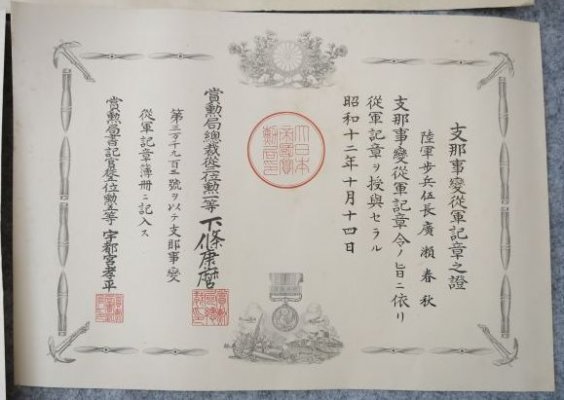 支那事變從軍記章之證
陸軍步兵伍長廣瀬春秋
支那事變從軍記章令ノ旨ニ依リ
從軍記章ヲ授與セラル
昭和十二年十月十四日
大日本
帝國賞
勳局印
賞勳局總裁從三位勳一等下條康麿
號ヲ以テ支那事變
從軍記章簿册ニ記入ス
賞勳局書記官從五位勳五等宇都宮孝平